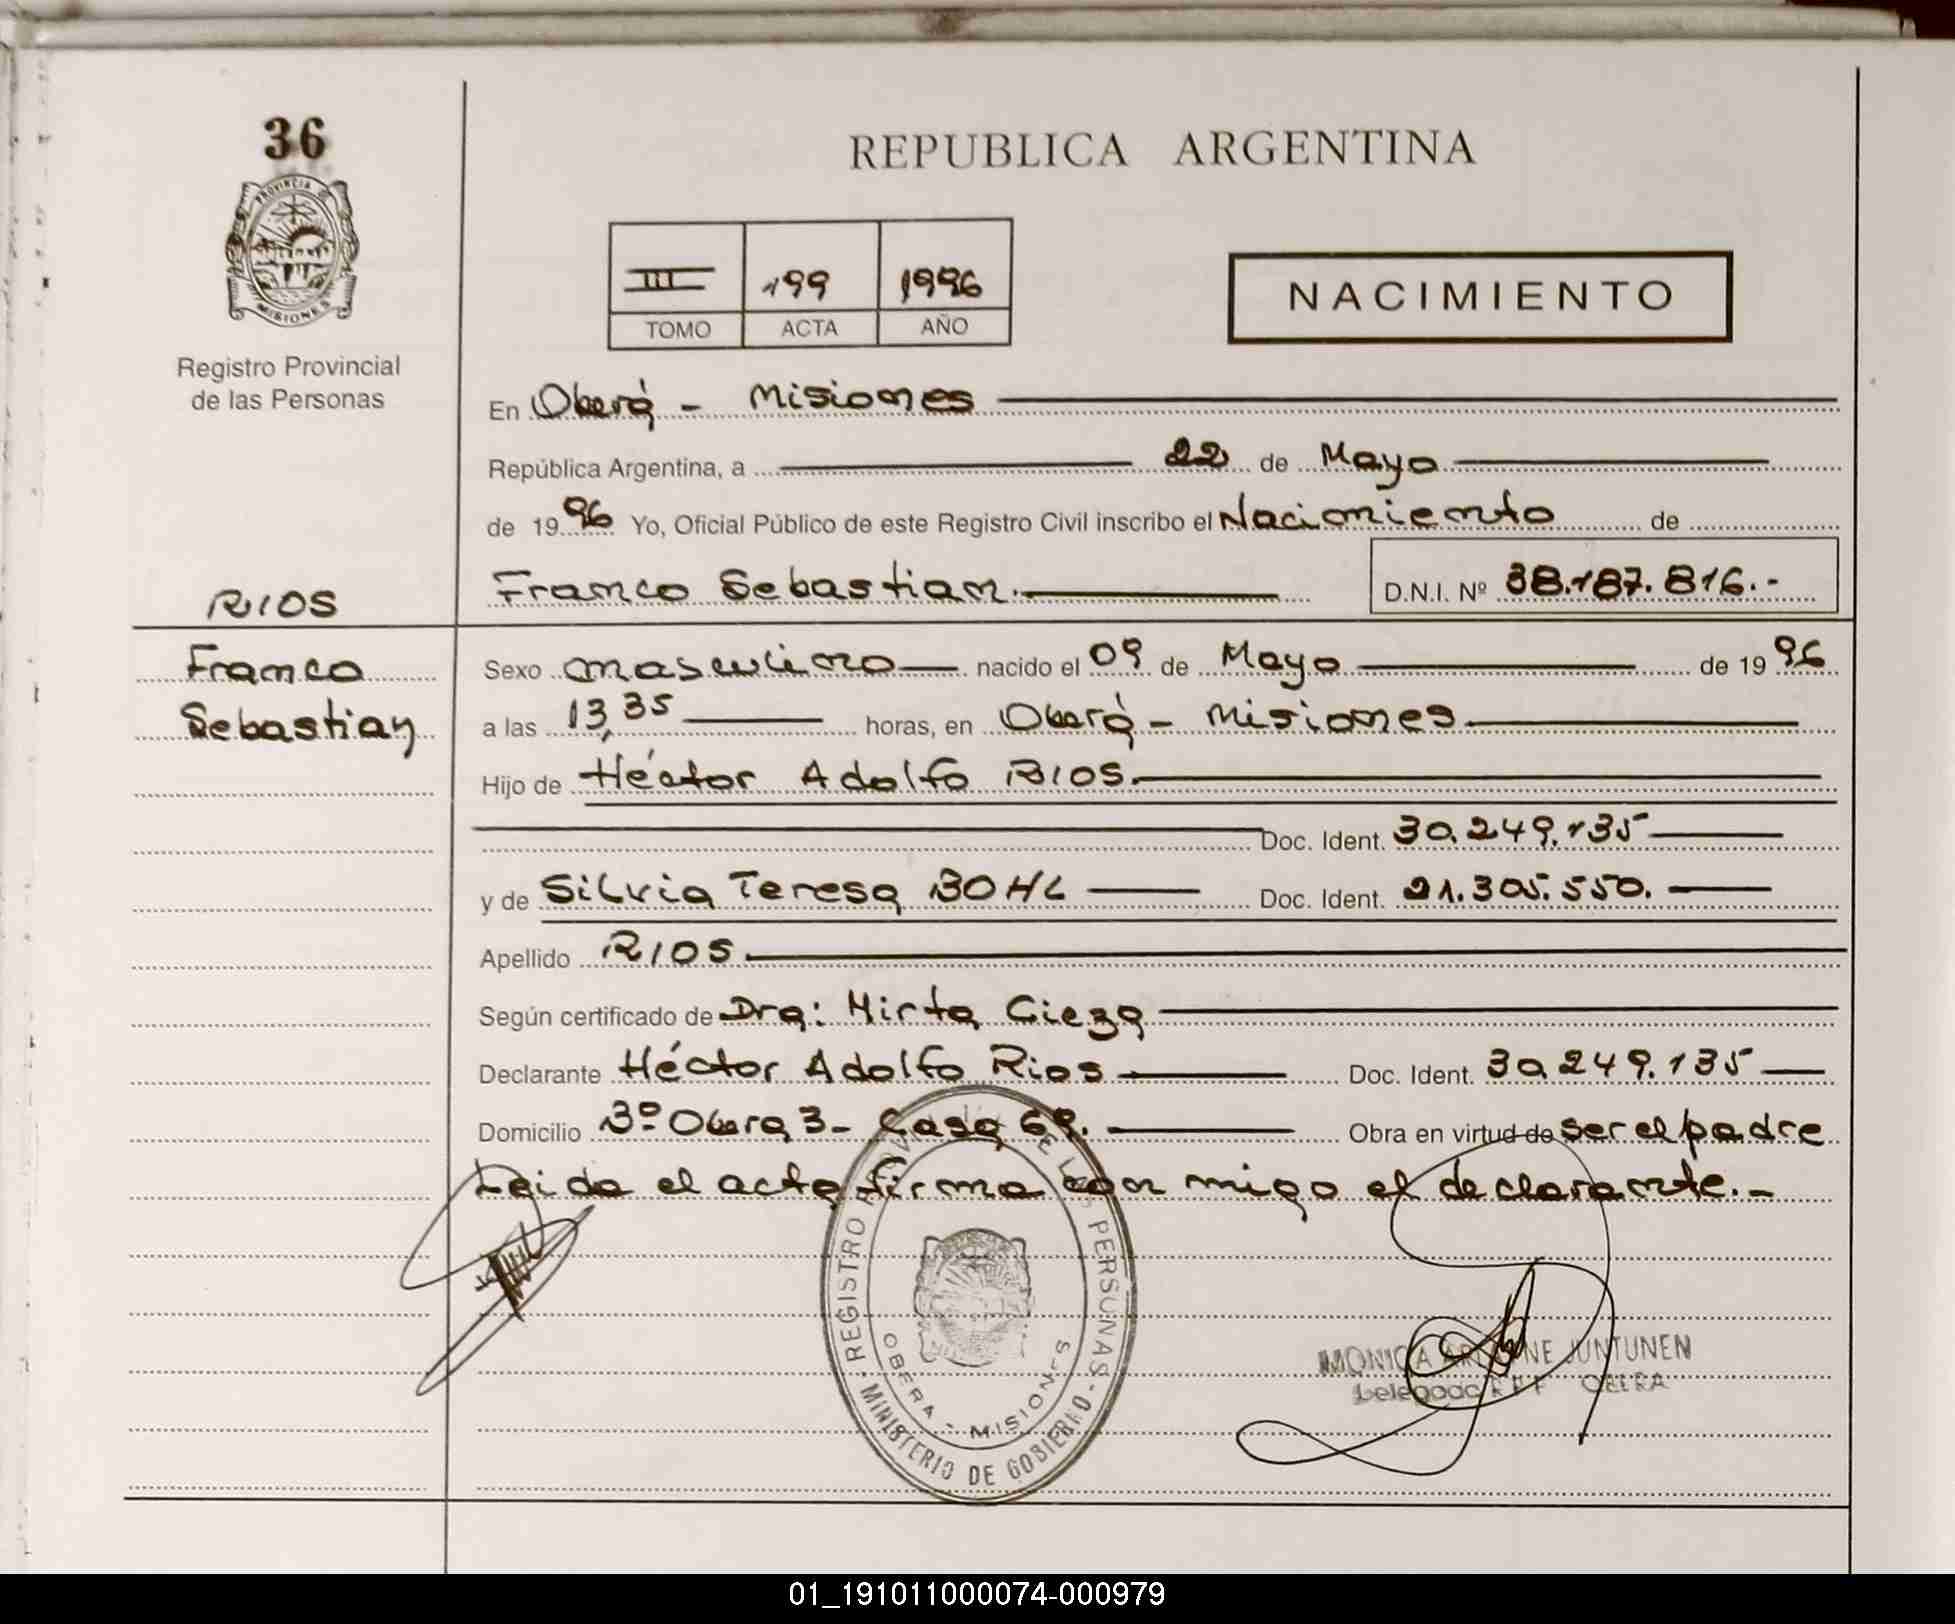 36
PROVINCIA DE
MISIONES
Registro Provincial
de las Personas
RIOS
Franco
Sebastian
REPUBLICA ARGENTINA
III 199 1996
TOMO ACTA AÑO
NACIMIENTO
En Oberá - Misiones
República Argentina, a 22 de Mayo
de 1996 Yo, Oficial Público de este Registro Civil inscribo el Nacimiento de
Franco Sebastian.
D.N.I. Nº 38.187.816.-
Sexo masculino nacido el 09 de Mayo de 1996
a las 13,35 horas, en Oberá - Misiones
Hijo de Héctor Adolfo RIOS.
Doc. Ident. 30.249.135
y de Silvia Teresa BOHL Doc. Ident. 21.305.550.
Apellido RIOS
Según certificado de Dra: Mirta Cieza
Declarante Héctor Adolfo Rios Doc. Ident. 30.249.135
Domicilio Bº Obera 3 - Casa 69. Obra en virtud de ser el padre
Leida el acta firma con migo el declarante.-
REGISTRO DE LAS PERSONAS - MINISTERIO DE GOBIERNO
OBERA - MISIONES
MONICA JUNTUNEN
OBERA
01_191011000074-000979